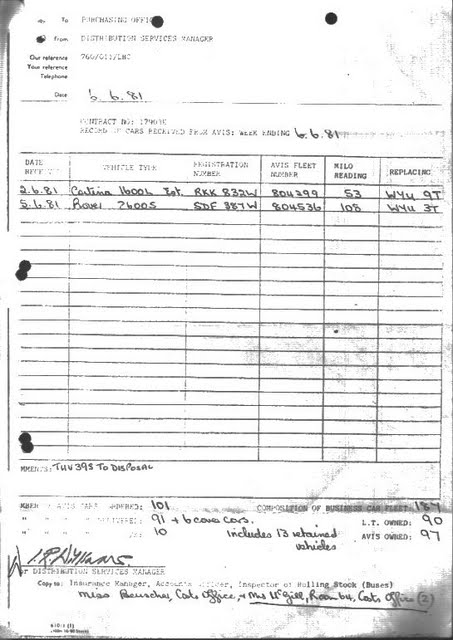 To PURCHASING OFFICER
From DISTRIBUTION SERVICES MANAGER
Our reference 760/011/LMC
Your reference
Telephone
Date 6.6.81
CONTRACT NO:
RECORD OF CARS RECEIVED FROM AVIS: WEEK ENDING 6.6.81
DATE RECEIVED VEHICLE TYPE REGISTRATION NUMBER AVIS FLEET NUMBER MILO READING REPLACING
2.6.81 Cortina 1600L Est. RKK 832W 804399 53 WYU 9T
5.6.81 Rover 2600S SDF 887W 804536 108 WYU 3T
MMENTS: THV 39S TO DISPOSAL
MBER OF AVIS CARS ORDERED: 101 COMPOSITION OF BUSINESS CAR FLEET: 187
" " " DELIVERED: 91 + 6 cova cars. L.T. OWNED: 90
" " " 10 includes 13 retained vehicles AVIS OWNED: 97
DISTRIBUTION SERVICES MANAGER
Copy to: Insurance Manager, Accounts Officer, Inspector of Rolling Stock (Buses)
Miss Reuscher, Cats Office, + Mrs McGill, Room 64, Cats Office (2)